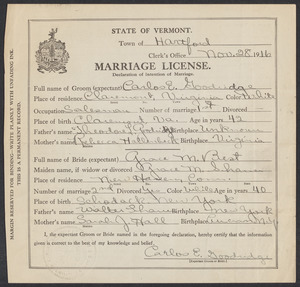 MARGIN RESERVED FOR BINDING—WRITE PLAINLY WITH UNFADING INK.
THIS IS A PERMANENT RECORD.
STATE OF VERMONT.
Town of Hartford
Clerk's Office, Nov. 28, 1916
MARRIAGE LICENSE.
Declaration of intention of Marriage.
Full name of Groom (expectant) Carlos E. Goodridge
Place of residence Claremont Virginia Color White
Occupation Salesman Number of marriage 1st
Place of birth Claremont Va. Age in years 42
Father's name Theodore Birthplace Unknown
Mother's name Birthplace Virginia
Full name of Bride (expectant) Grace M. Best
Maiden name, if widow or divorced Grace M.
Place of residence New
Number of marriage 2nd Color White Age in years 40
Place of birth New York
Father's name Walter Birthplace New York
Mother's name Sarah J. Hall Birthplace
I, the expectant Groom or Bride named in the foregoing declaration, hereby certify that the information given is correct to the best of my knowledge and belief.
Carlos E. Goodridge